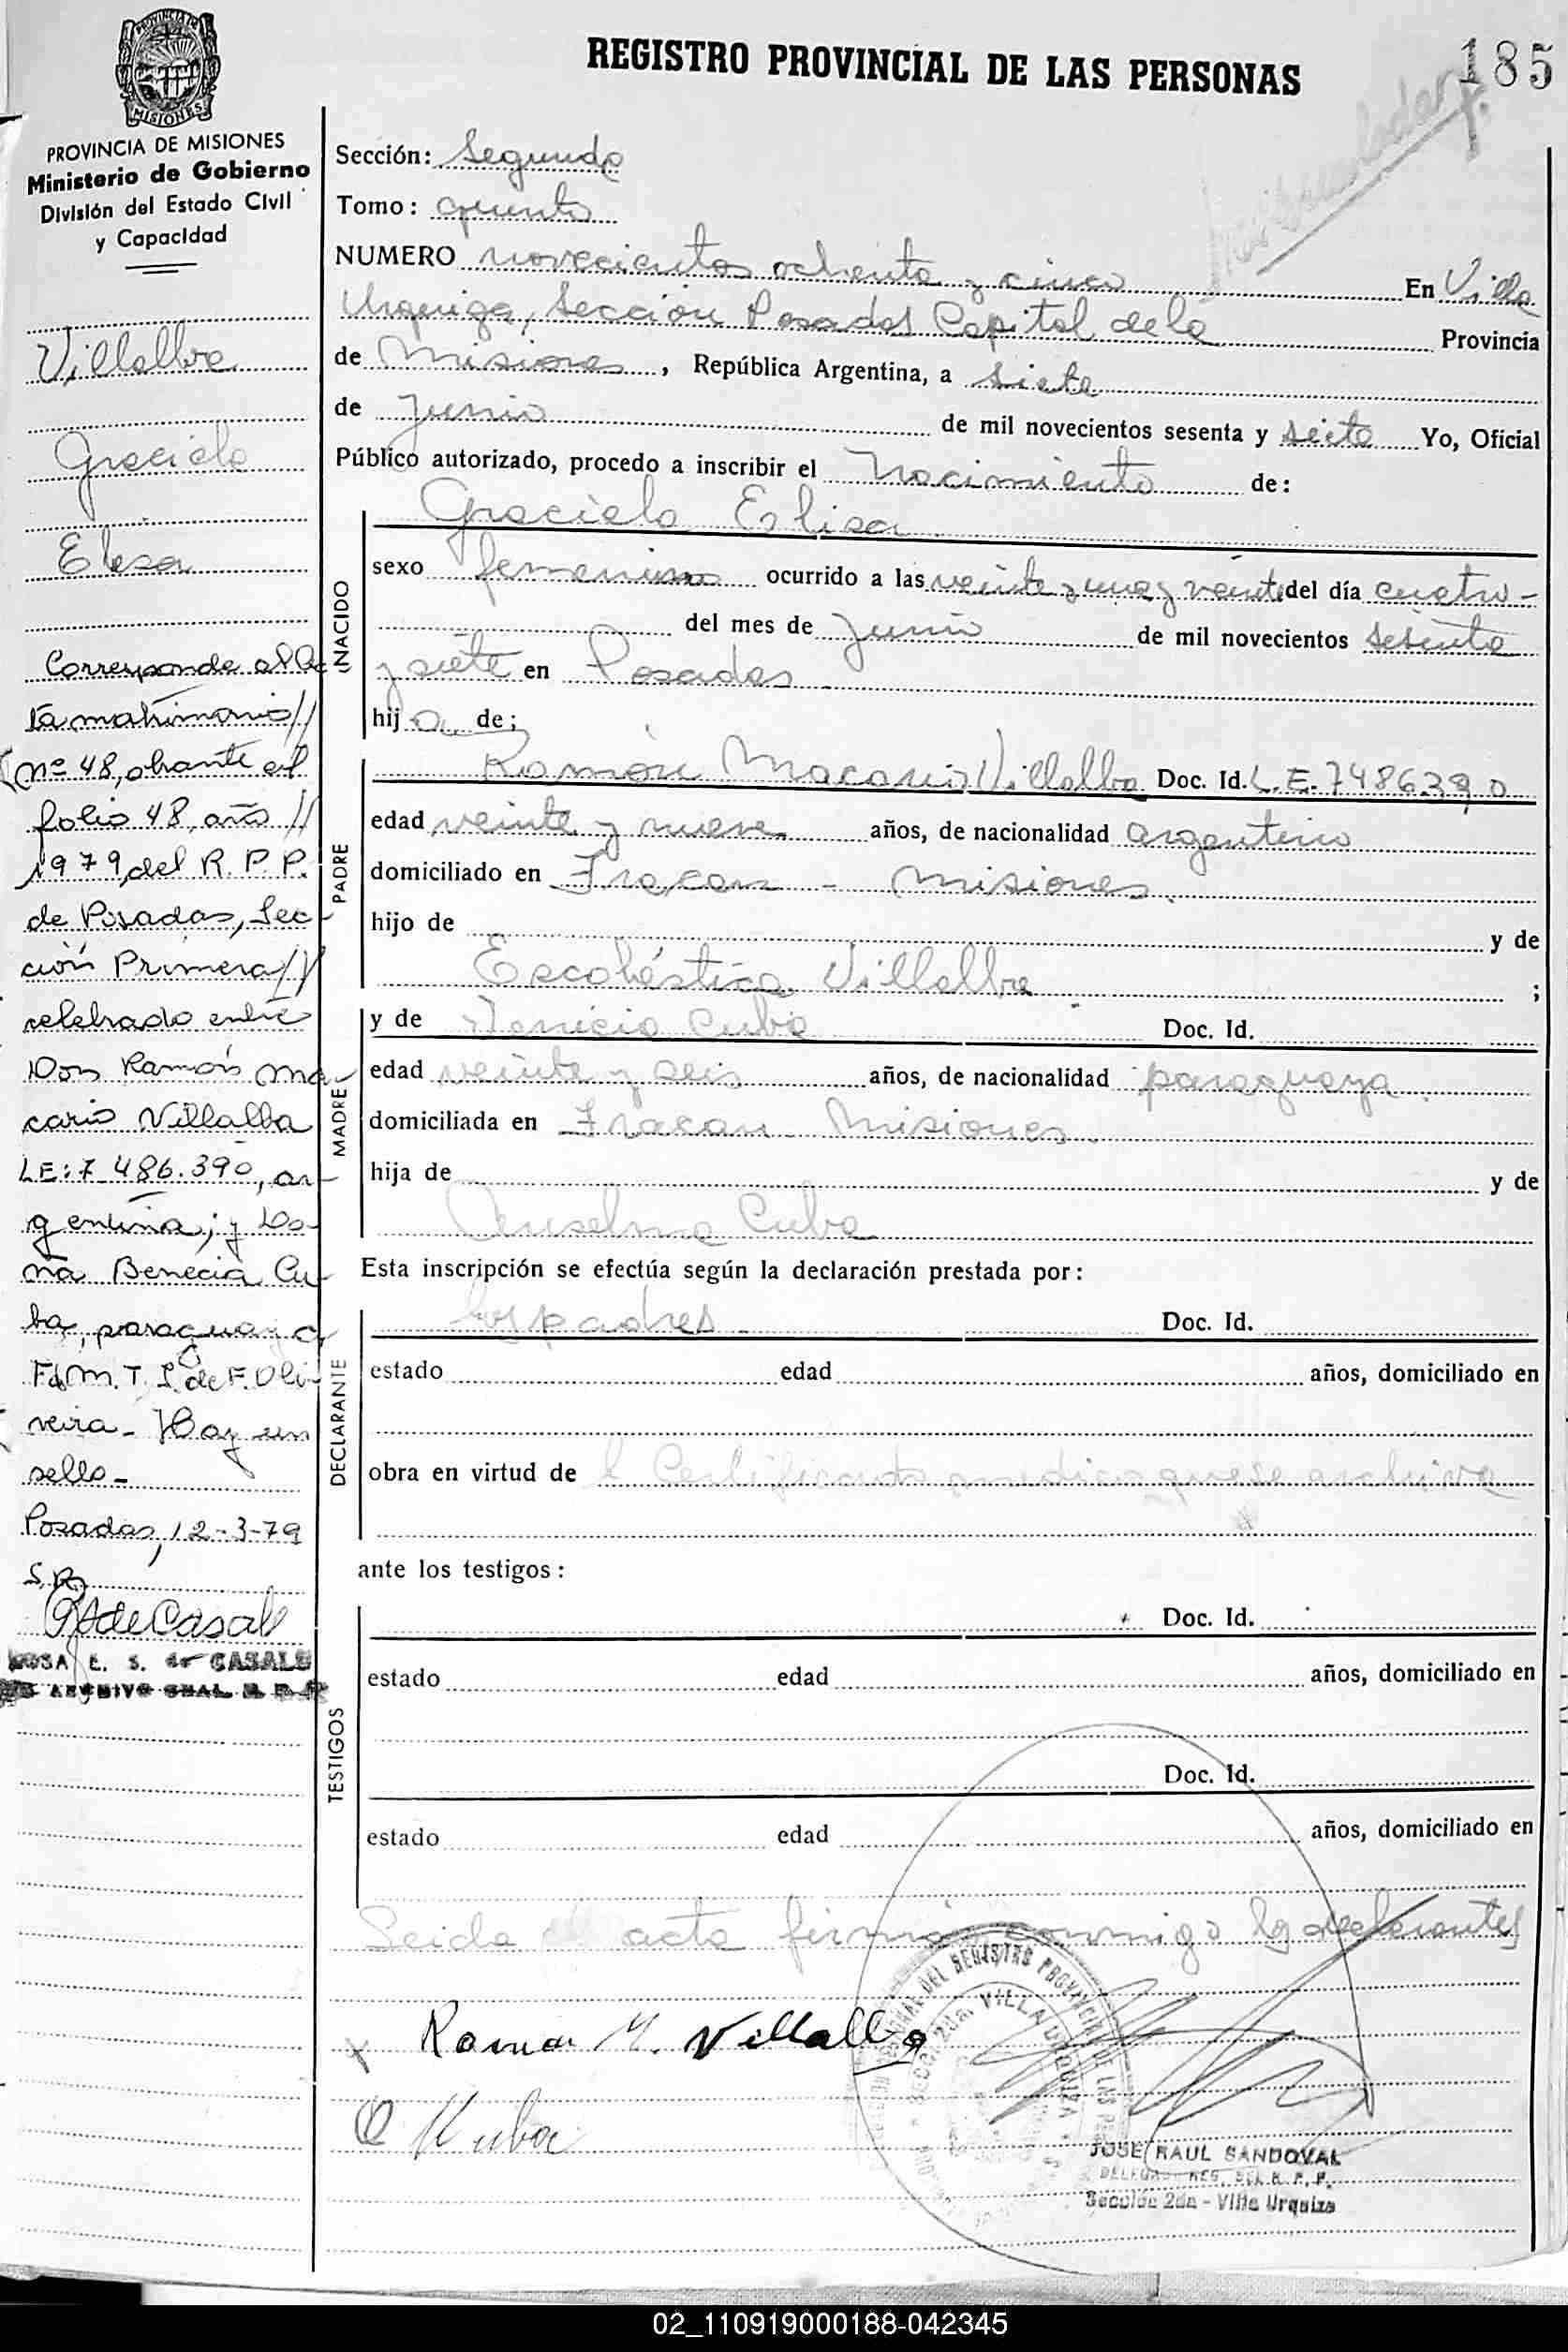 REGISTRO PROVINCIAL DE LAS PERSONAS
185
PROVINCIA DE MISIONES
PROVINCIA DE MISIONES
Ministerio de Gobierno
División del Estado Civil
y Capacidad
Villalba
Graciela
Elisa
Corresponde al Ac
ta matrimonio//
(nº 48, obrante al
folio 48, año //
1979, del R. P. P.
de Posadas, Sec-
ción Primera//
celebrado entre
Don Ramón Ma-
cario Villalba
LE: 7.486.390, ar-
gentina; y Do-
ña Benecia Cu-
ba, paraguaya
Fdo M. T. S. de F. Oli-
veira - Hay un
sello -
Posadas, 12-3-79
S.R.
RSdeCasals
ROSA E. S. de CASALS
ARCHIVO GRAL. R. P. P.
Sección: Segunda
Tomo: quinto
NUMERO novecientos ochenta y cinco En Villa
Urquiza, Sección Posadas Capital de la Provincia
de Misiones, República Argentina, a siete
de Junio de mil novecientos sesenta y siete Yo, Oficial
Público autorizado, procedo a inscribir el Nacimiento de:
NACIDO
Graciela Elisa
sexo femenino ocurrido a las veinte y una y veinte del día cuatro -
del mes de Junio de mil novecientos sesenta
y siete en Posadas
hija de;
PADRE
Ramón Macario Villalba Doc. Id. L.E. 7486390
edad veinte y nueve años, de nacionalidad argentino
domiciliado en Fracan - Misiones
hijo de y de
Escolástica Villalba ;
MADRE
y de Cuba Doc. Id.
edad veinte y seis años, de nacionalidad paraguaya
domiciliada en Fracan - Misiones.
hija de y de
Anselma Cuba
Esta inscripción se efectúa según la declaración prestada por:
DECLARANTE
los padres Doc. Id.
estado edad años, domiciliado en
obra en virtud de l Certificado medico que se archiva
ante los testigos:
TESTIGOS
Doc. Id.
estado edad años, domiciliado en
Doc. Id.
estado edad años, domiciliado en
Leida el acta firman conmigo los declarantes
Ramon M. Villalba
Kuba
DEL REGISTRO PROVINCIAL DE LAS PERSONAS
SECC. 2da. VILLA URQUIZA
JOSE RAUL SANDOVAL
DELEGADO REG. DEL R. P. P.
Sección 2da - Villa Urquiza
02_110919000188-042345